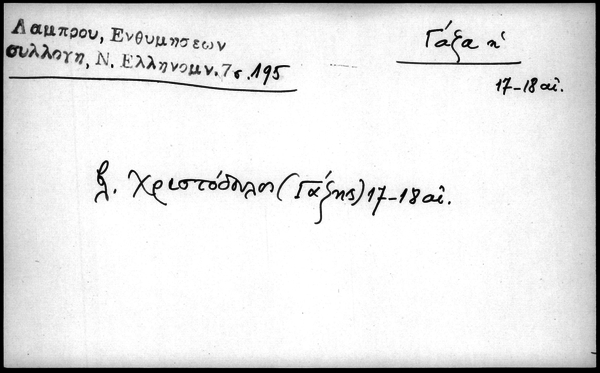 Λαμπρου, Ενθυμησεων
συλλογη, Ν. Ελληνομν. 7 σ. 195
Γάζα κ'
17-18 αἰ.
βλ. Χριστόδουλος (Γάζης) 17-18 αἰ.